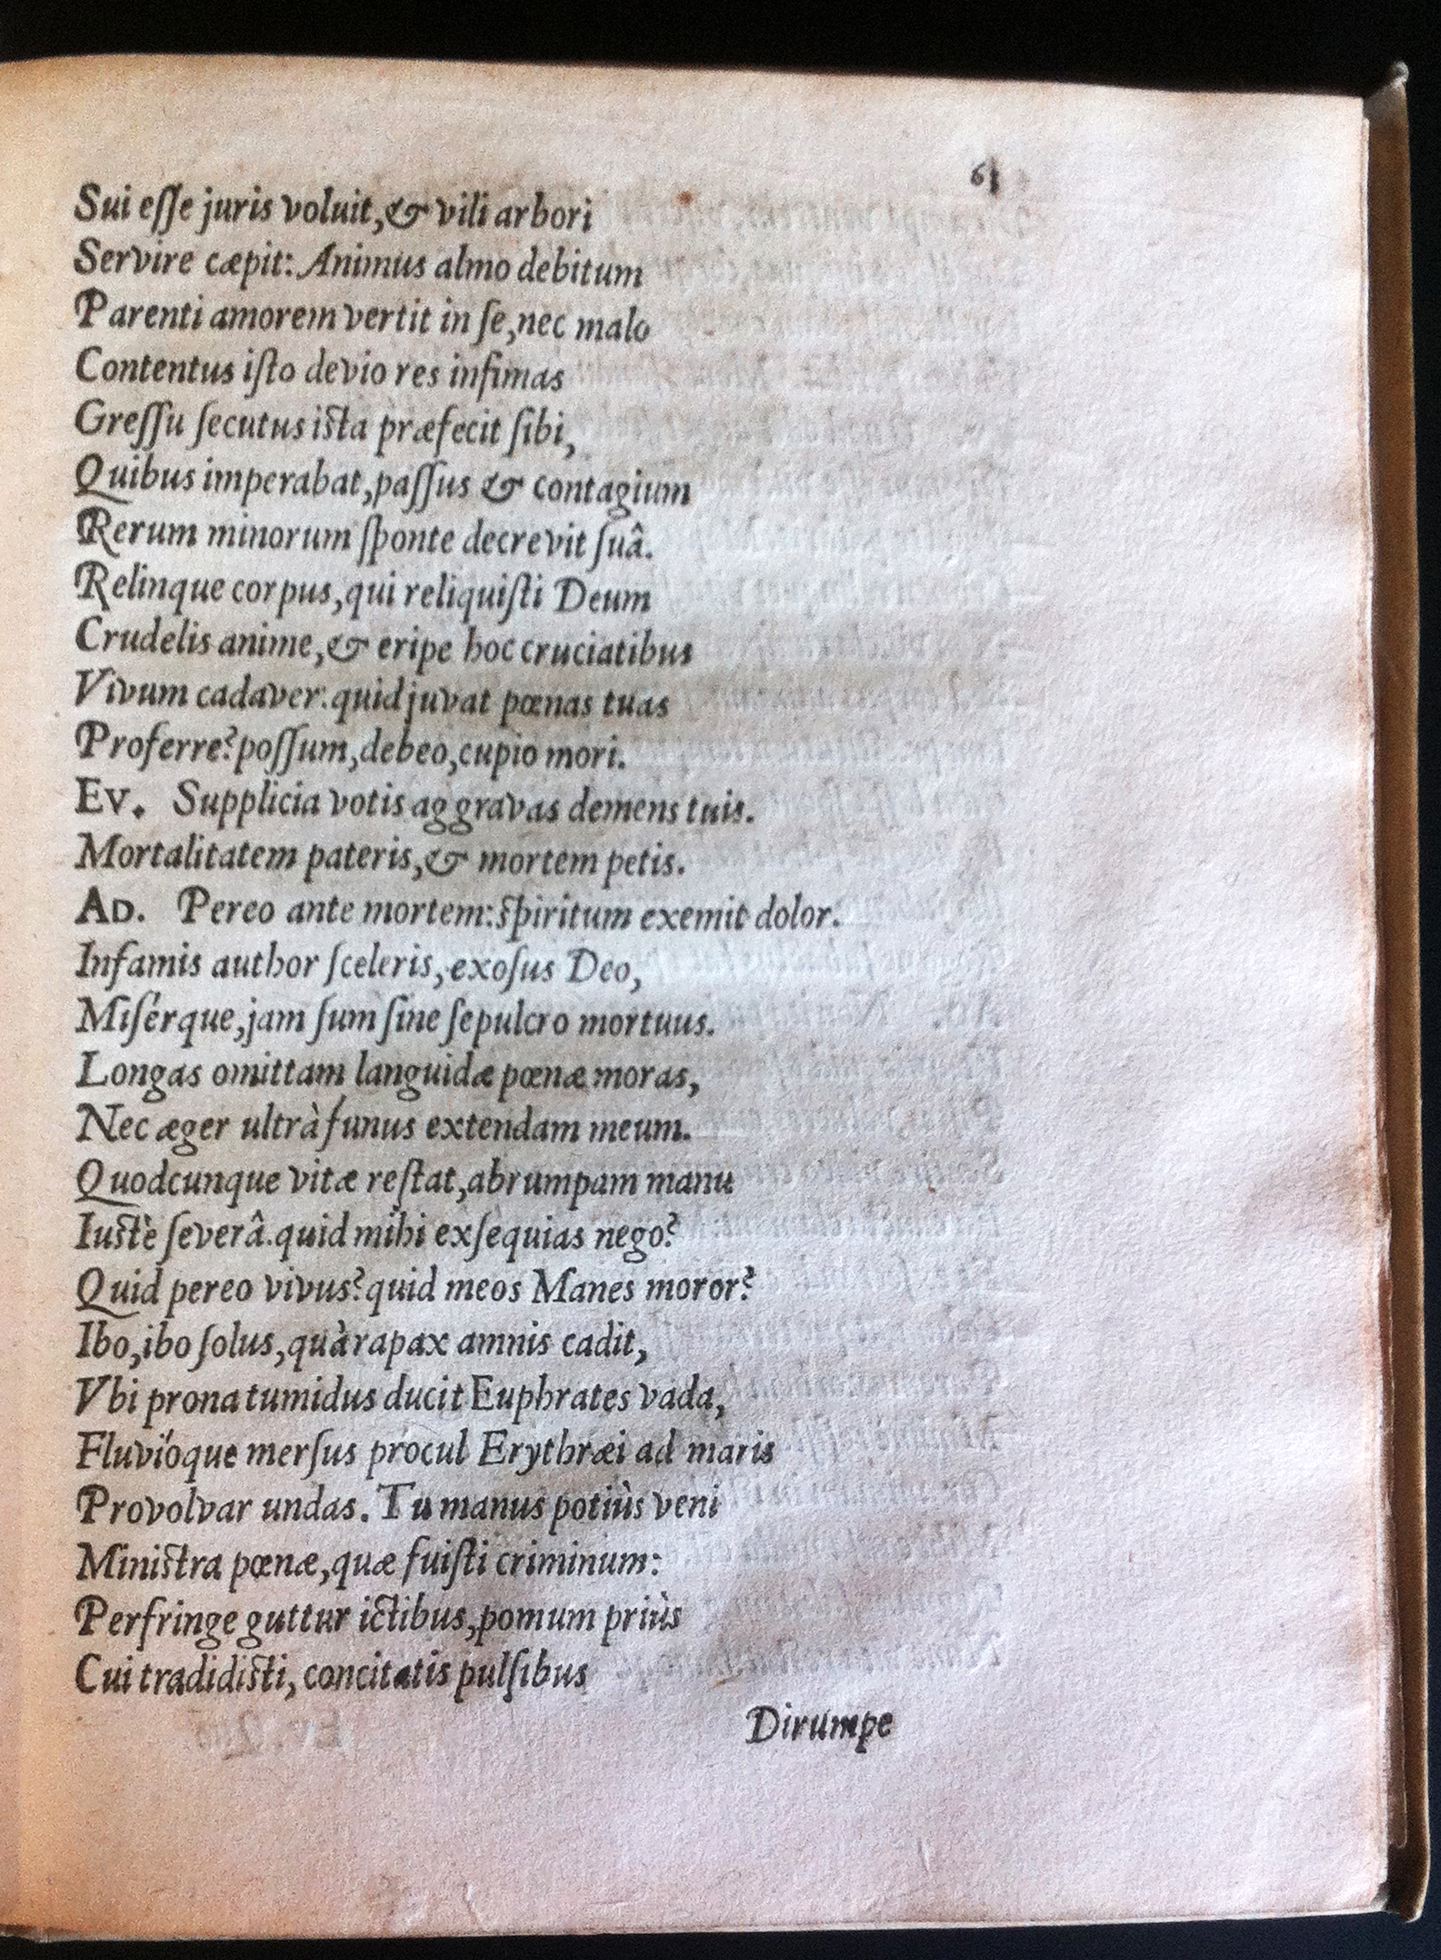 61
Sui eſſe juris voluit, & vili arbori
Servire cæpit: Animus almo debitum
Parenti amorem vertit in ſe, nec malo
Contentus iſto devio res infimas
Greſſu ſecutus iſta præfecit ſibi,
Quibus imperabat, paſſus & contagium
Rerum minorum ſponte decrevit ſuâ.
Relinque corpus, qui reliquiſti Deum
Crudelis anime, & eripe hoc cruciatibus
Vivum cadaver. quid juvat pœnas tuas
Proferre? poſſum, debeo, cupio mori.
EV. Supplicia votis aggravas demens tuis.
Mortalitatem pateris, & mortem petis.
AD. Pereo ante mortem: ſpiritum exemit dolor.
Infamis author ſceleris, exoſus Deo,
Miſérque, jam ſum ſine ſepulcro mortuus.
Longas omittam languidæ pœnæ moras,
Nec æger ultrà funus extendam meum.
Quodcunque vitæ reſtat, abrumpam manu
Iuſtè ſeverâ. quid mihi exſequias nego?
Quid pereo vivus? quid meos Manes moror?
Ibo, ibo ſolus, quà rapax amnis cadit,
Vbi prona tumidus ducit Euphrates vada,
Fluvióque merſus procul Erythræi ad maris
Provolvar undas. Tu manus potiùs veni
Miniſtra pœnæ, quæ fuiſti criminum:
Perfringe guttur ictibus, pomum priùs
Cui tradidiſti, concitatis pulſibus
Dirumpe